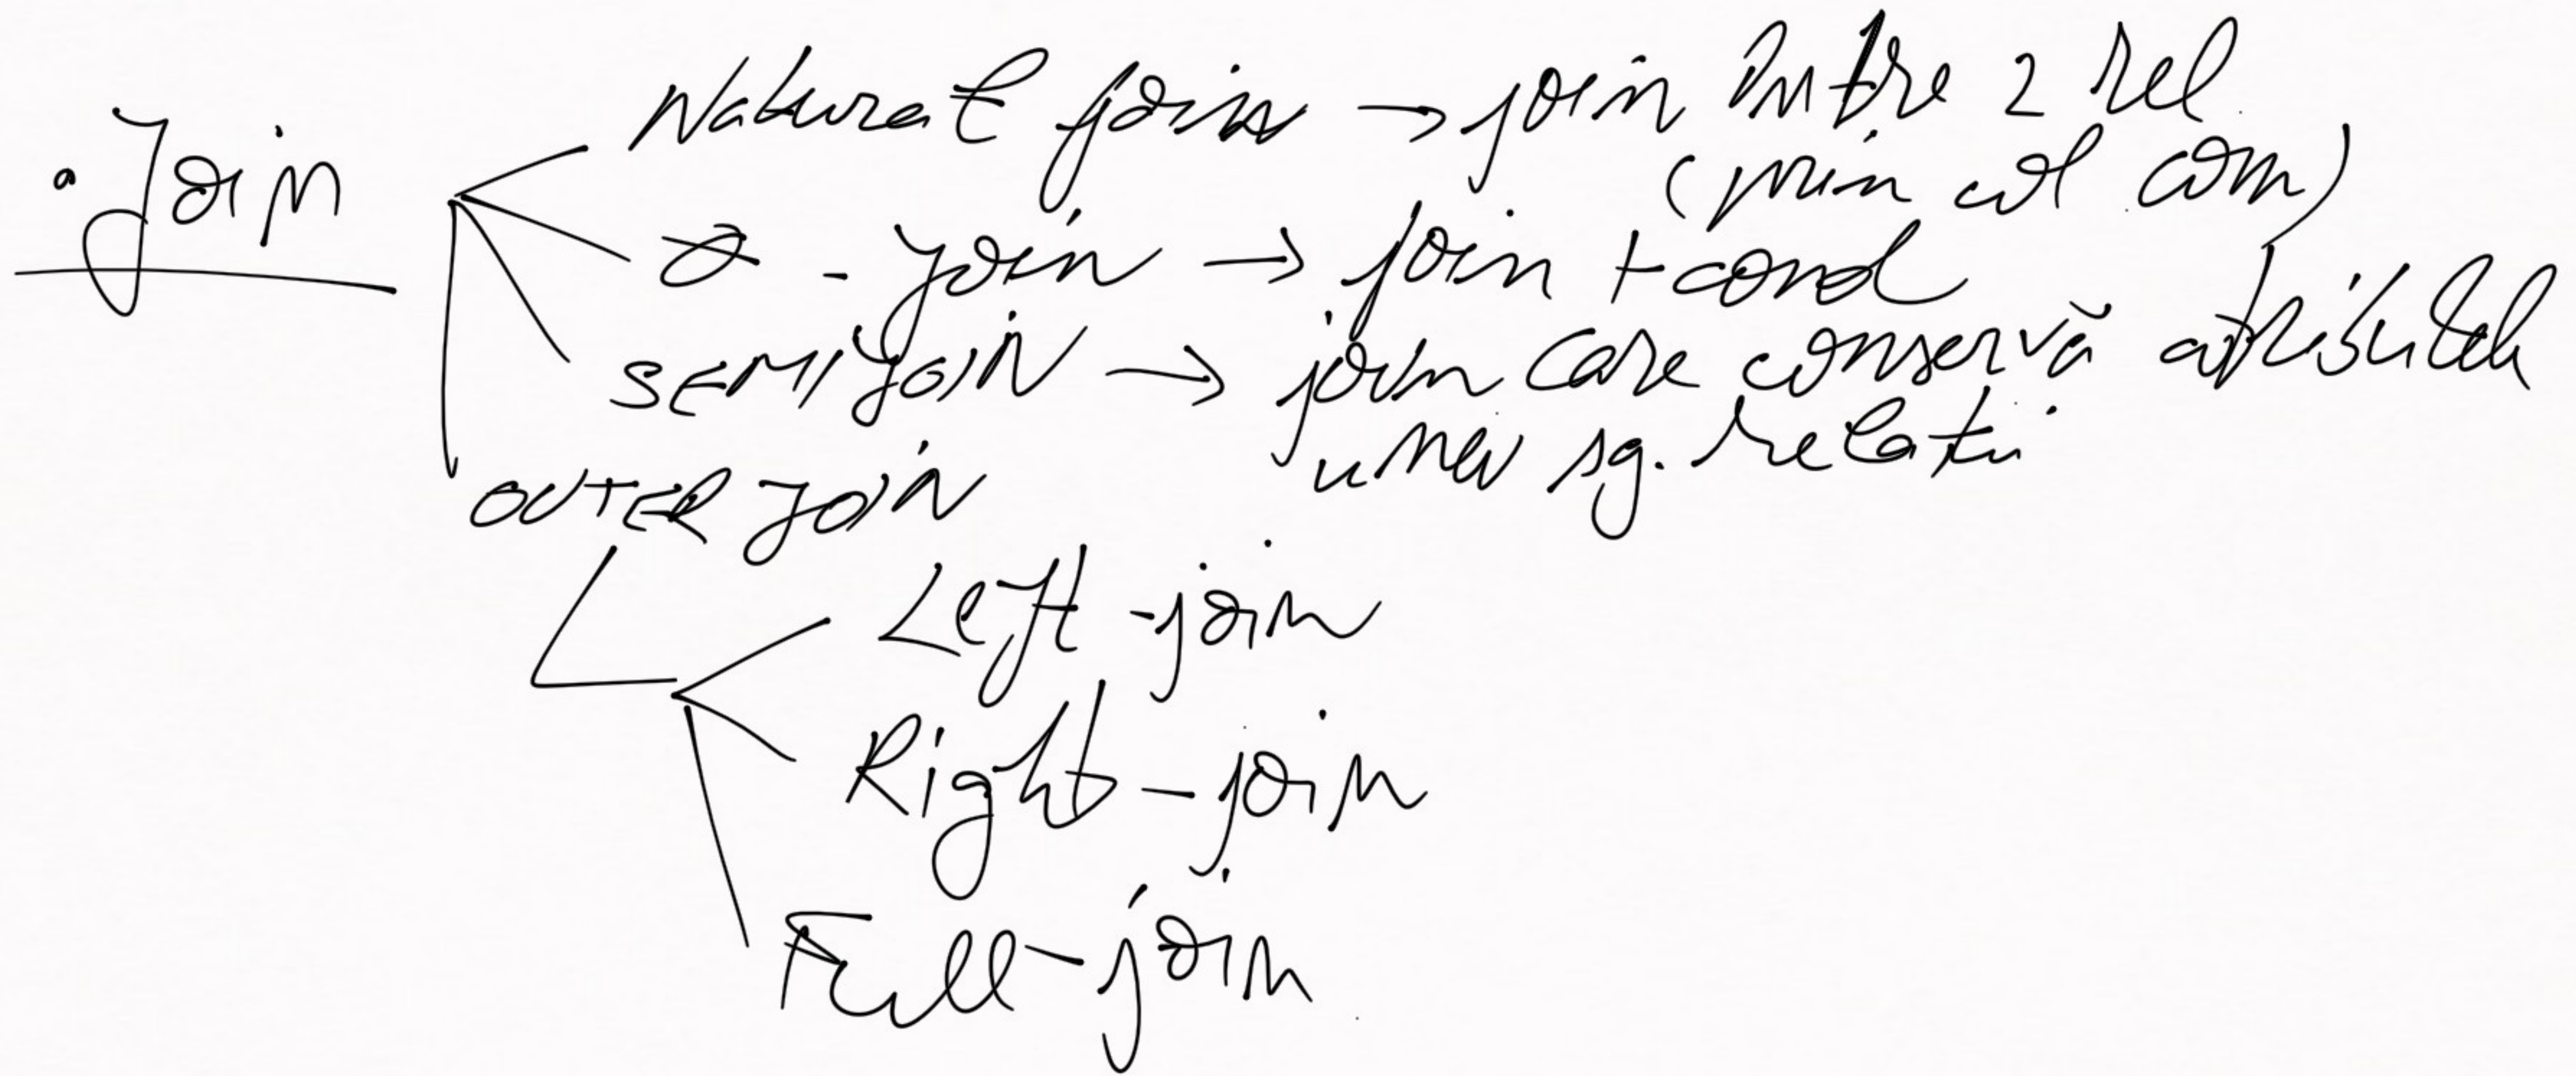 • Join
Natural join → join între 2 rel
(prin col com)
θ - join → join + cond
SEMIJOIN → join care conservă atributele
unei sg. relatii
OUTER JOIN
Left - join
Right - join
Full - join